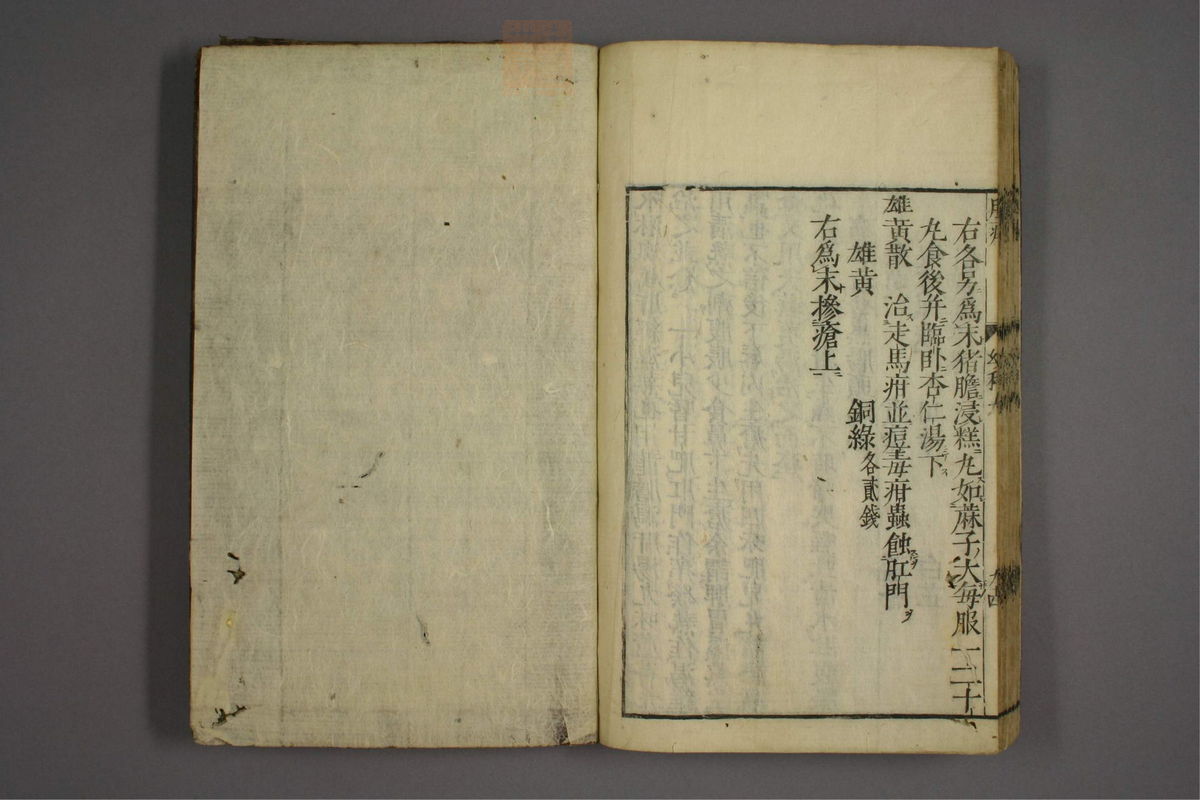 右各另爲末猪膽浸糕丸如蔴子大每服一二十
丸食後并臨卧杏仁湯下
雄黄散　治走馬疳並痘毒疳蟲蝕肛門
雄黄　銅綠各貳錢
右爲末摻瘡上